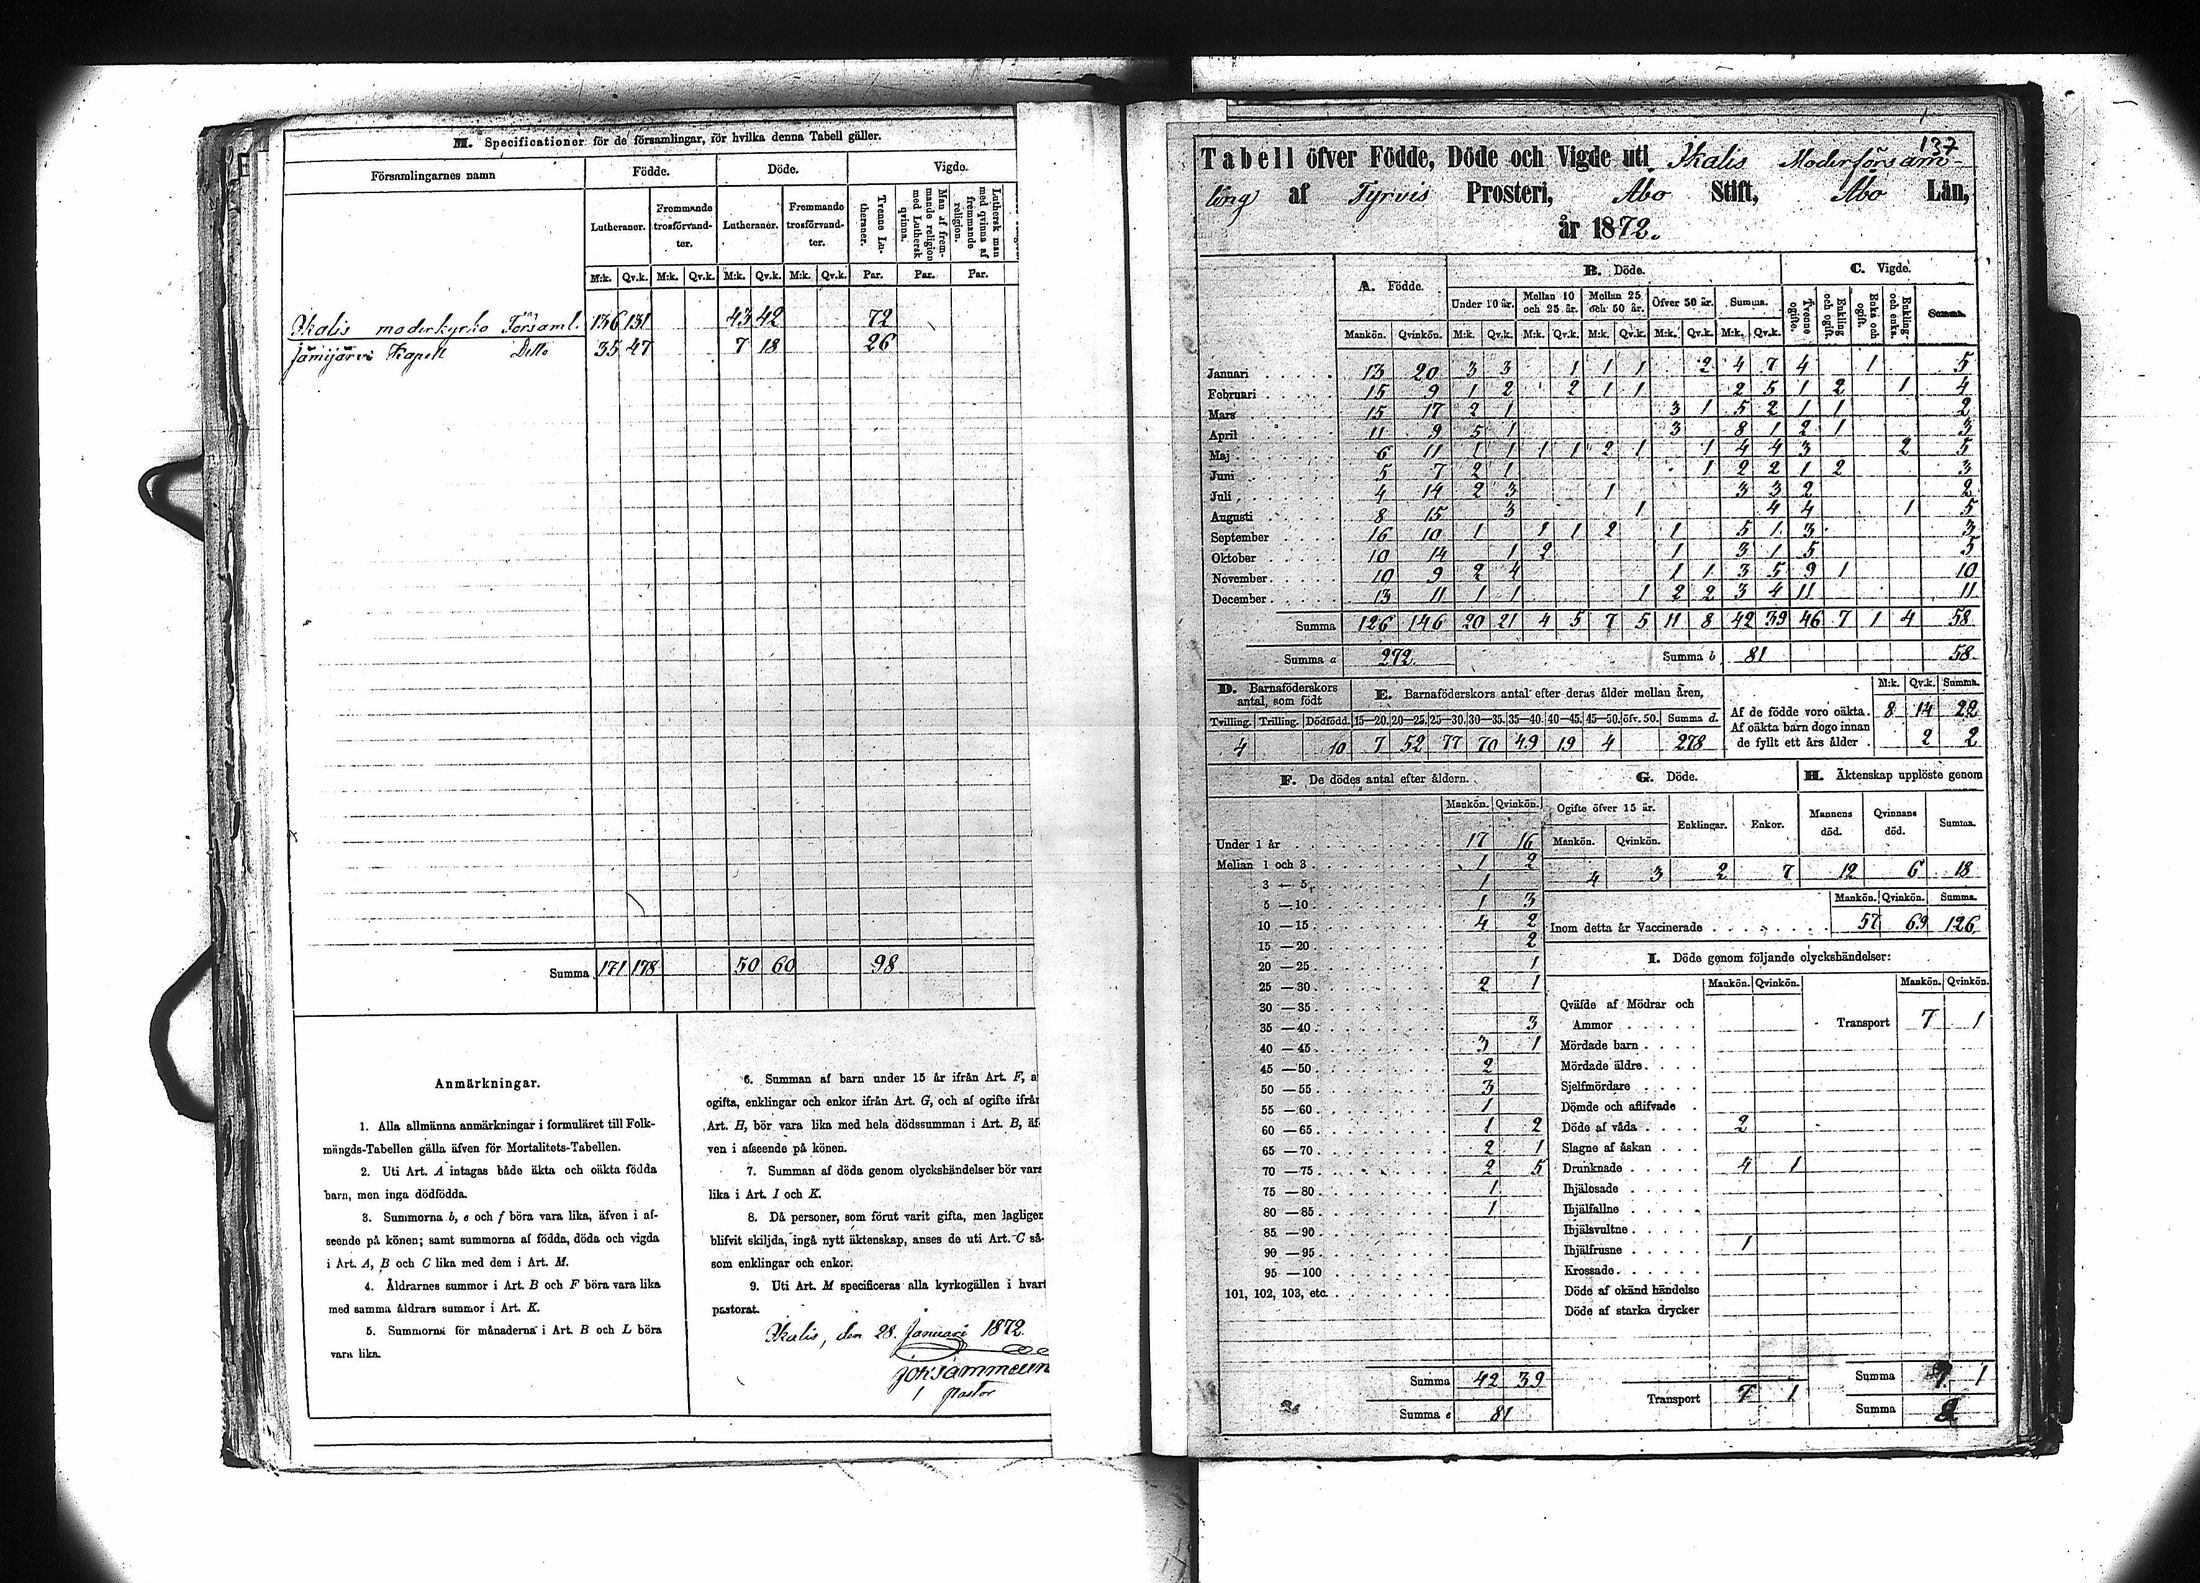 M. Specificationer för de församlingar, för hvilka denna Tabell gäller.
Församlingarnes namn | Födde. | Döde. | Vigde.
Lutheraner. | Fremmande trosförvandter. | Lutheraner. | Fremmande trosförvandter. | Tvenne Lutheraner. | Man af fremmande religion med Luthersk qvinna. | Luthersk man med qvinna af fremmande religion.
M:k. Qv.k. M:k. Qv.k. M:k. Qv.k. M:k. Qv.k. Par. Par. Par.
Ikalis moderkyrko Församl. 136 131 43 42 72
Jämijärvi Kapell Ditto 35 47 7 18 26
Summa 171 178 50 60 98
Anmärkningar.
1. Alla allmänna anmärkningar i formuläret till Folk-
mängds-Tabellen gälla äfven för Mortalitets-Tabellen.
2. Uti Art. A intagas både äkta och oäkta födda
barn, men inga dödfödda.
3. Summorna b, e och f böra vara lika, äfven i af-
seende på könen; samt summorna af födda, döda och vigda
i Art. A, B och C lika med dem i Art. M.
4. Åldrarnes summor i Art. B och F böra vara lika
med samma åldrars summor i Art. K.
5. Summorna för månaderna i Art. B och L böra
vara lika.
6. Summan af barn under 15 år ifrån Art. F, a
ogifta, enklingar och enkor ifrån Art. G, och af ogifte ifrån
Art. H, bör vara lika med hela dödssumman i Art. B, äf-
ven i afseende på könen.
7. Summan af döda genom olyckshändelser bör vara
lika i Art. I och K.
8. Då personer, som förut varit gifta, men lagligen
blifvit skiljda, ingå nytt äktenskap, anses de uti Art. C så-
som enklingar och enkor.
9. Uti Art. M specificeras alla kyrkogällen i hvart
pastorat.
Ikalis, den 28 Januari 1872.
Pastor
137
Tabell öfver Födde, Döde och Vigde uti Ikalis Moderförsam-
ling af Tyrvis Prosteri, Åbo Stift, Åbo Län,
år 1872.
A. Födde. | B. Döde. | C. Vigde.
Under 10 år. | Mellan 10 och 25 år. | Mellan 25 och 50 år. | Öfver 50 år. | Summa. | Tvenne ogifte. | Enkling och ogift. | Enka och ogift. | Enkling och enka. | Summa.
Mankön. Qvinkön. M:k. Qv.k. M:k. Qv.k. M:k. Qv.k. M:k. Qv.k. M:k. Qv.k.
Januari 13 20 3 3 1 1 1 2 4 7 4 1 5
Februari 15 9 1 2 2 1 1 2 5 1 2 1 4
Mars 15 17 2 1 3 1 5 2 1 1 2
April 11 9 5 1 3 8 1 2 1 3
Maj 6 11 1 1 1 1 2 1 1 4 4 3 2 5
Juni 5 7 2 1 1 2 2 1 2 3
Juli 4 14 2 3 1 3 3 2 2
Augusti 8 15 3 1 4 4 1 5
September 16 10 1 1 1 2 1 5 1 3 3
Oktober 10 14 1 2 1 3 1 5 5
November 10 9 2 4 1 1 3 5 9 1 10
December 13 11 1 1 1 2 2 3 4 11 11
Summa 126 146 20 21 4 5 7 5 11 8 42 39 46 7 1 4 58
Summa a 272. Summa b 81 58.
D. Barnaföderskors antal, som födt
Tvilling. Trilling. Dödfödd.
4 10
E. Barnaföderskors antal efter deras ålder mellan åren,
15—20. 20—25. 25—30. 30—35. 35—40. 40—45. 45—50. öfv. 50. Summa d.
7 52 77 70 49 19 4 278
M:k. Qv.k. Summa.
Af de födde voro oäkta. 8 14 22
Af oäkta barn dogo innan
de fyllt ett års ålder . 2 2
F. De dödes antal efter åldern.
Mankön. Qvinkön.
Under 1 år 17 16
Mellan 1 och 3 1 2
3 — 5 1
5 — 10 1 3
10 — 15 4 2
15 — 20 2
20 — 25 1
25 — 30 2 1
30 — 35
35 — 40 3
40 — 45 3 1
45 — 50 2
50 — 55 3
55 — 60 1
60 — 65 1 2
65 — 70 2 1
70 — 75 2 5
75 — 80 1
80 — 85 1
85 — 90
90 — 95
95 — 100
101, 102, 103, etc.
Summa 42 39
Summa e 81
G. Döde.
Ogifte öfver 15 år. | Enklingar. | Enkor.
Mankön. Qvinkön.
4 3 2 7
H. Äktenskap upplöste genom
Mannens död. | Qvinnans död. | Summa.
12 6 18
Mankön. Qvinkön. Summa.
Inom detta år Vaccinerade 57 69 126
I. Döde genom följande olyckshändelser:
Mankön. Qvinkön. Mankön. Qvinkön.
Qväfde af Mödrar och
Ammor
Transport 7 1
Mördade barn
Mördade äldre
Sjelfmördare
Dömde och aflifvade
Döde af våda 2
Slagne af åskan
Drunknade 4 1
Ihjälosade
Ihjälfallne
Ihjälsvultne
Ihjälfrusne 1
Krossade
Döde af okänd händelse
Döde af starka drycker
Transport 7 1
Summa 7 1
Summa 8